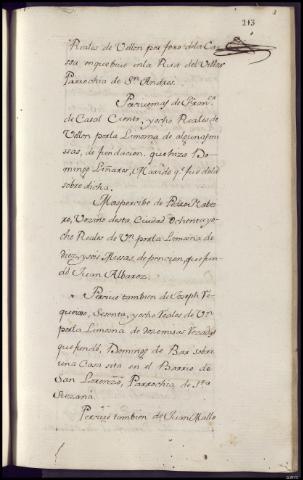 213
Reales de Vellon por foro de la Cas
sa en que biue en la Rua del Villar
Parrochia de Sn Andres.
Perciue mas de Fran.ca
de Casal Ciento, y ocho Reales de
Vellon por la Limosna de algunas mi
sas, de fundacion, que hizo Do-
mingo Liñares, Marido q.e fue de la
sobre dicha.
Mas percibe de Pedro
Vezino desta Ciudad ochenta y o
cho Reales de Vn. por la Limosna de
diez, y seis Missas, de pencion, que fun
dó Juan Albarez.
Perciue tambien de Joseph Ve
queiro, Sesenta, y ocho Reales de Vn
por la Limosna de doze misas Rezadas
que fundó, Domingo de Bar sobre
una Casa sita en el Barrio de
San Lorenzo, Parrochia de S.ta
Susana.
Perciue tambien de Juan Mallo